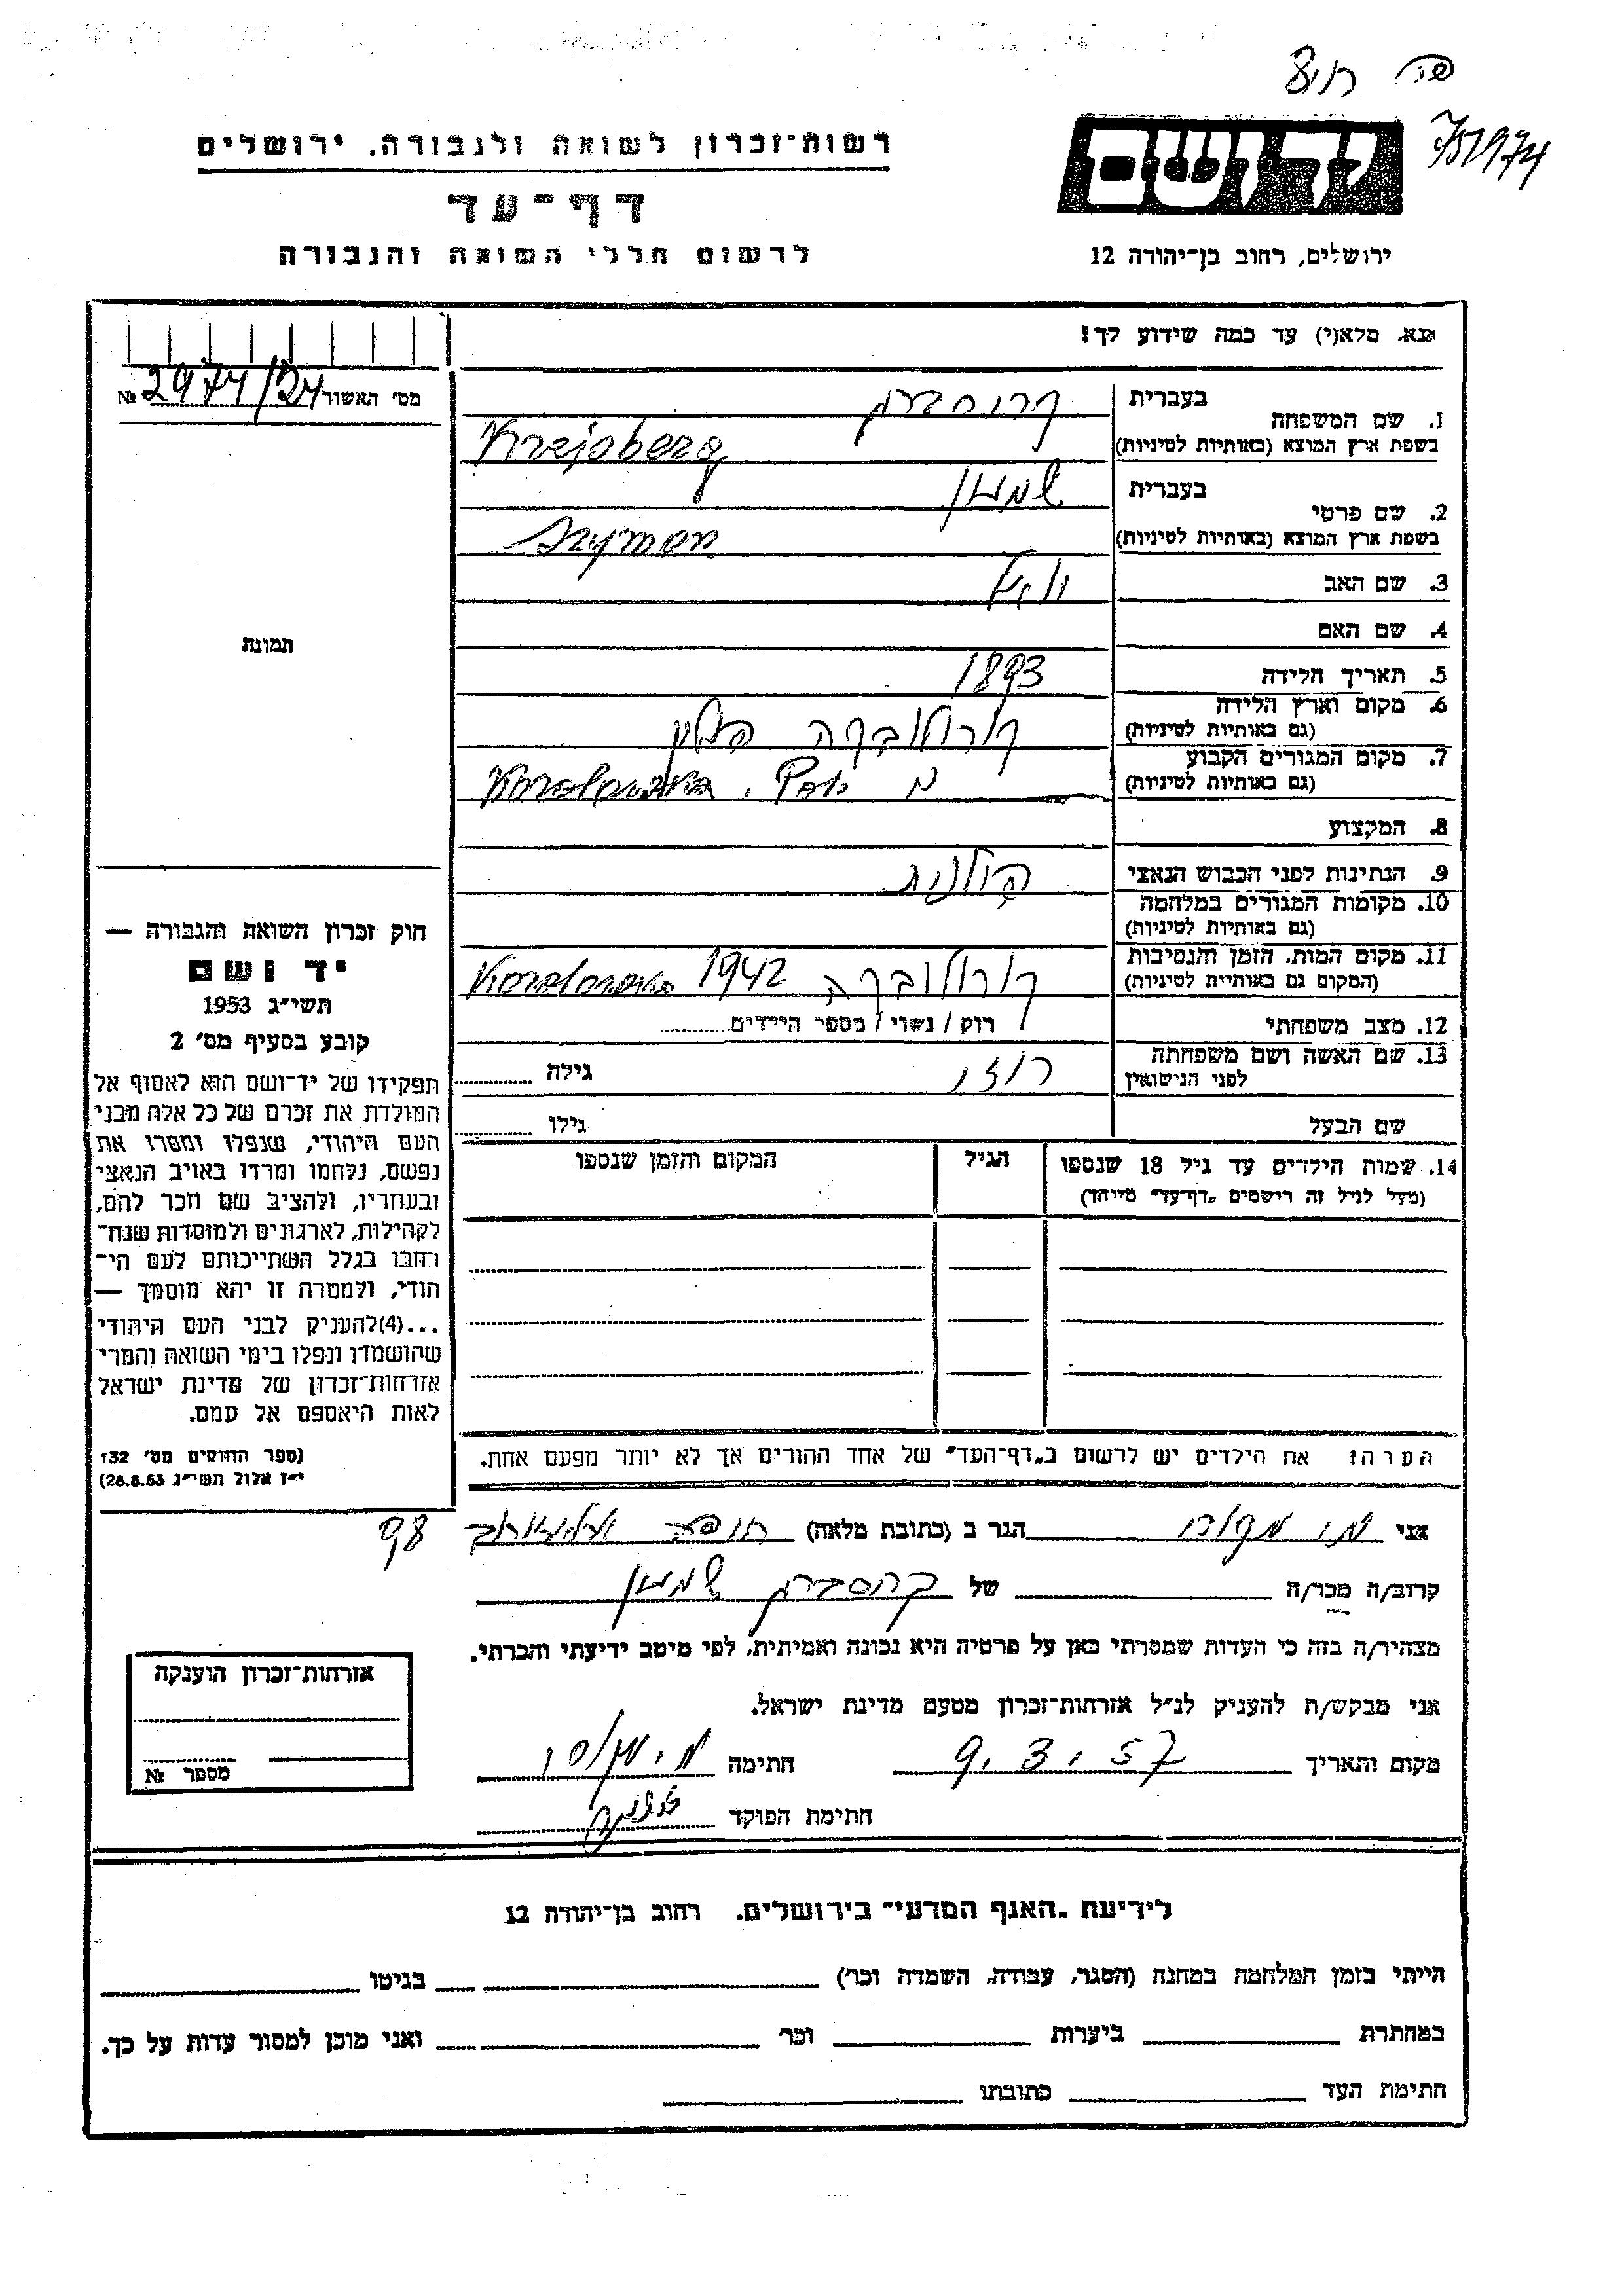 רשות־זכרון לשואה ולגבורה, ירושלים
יד ושם
דף־עד
לרשום חללי השואה והגבורה
ירושלים, רחוב בן־יהודה 12
נא מלא(י) עד כמה שידוע לך!
מס׳ האשור № 2974/24
בעברית
1. שם המשפחה
בשפת ארץ המוצא (באותיות לטיניות)
בעברית שמעון
2. שם פרטי
בשפת ארץ המוצא (באותיות לטיניות) Szymon
3. שם האב
4. שם האם
תמונה
5. תאריך הלידה 1893
6. מקום וארץ הלידה קורולובקה פולין
(גם באותיות לטיניות)
7. מקום המגורים הקבוע
(גם באותיות לטיניות)
8. המקצוע
9. הנתינות לפני הכבוש הנאצי פולנית
10. מקומות המגורים במלחמה
(גם באותיות לטיניות)
11. מקום המות, הזמן והנסיבות קורולובקה 1942
(המקום גם באותיית לטיניות)
12. מצב משפחתי רוק / נשוי / מספר הילדים
13. שם האשה ושם משפחתה רוזי גילה
לפני הנישואין
שם הבעל גילו
14. שמות הילדים עד גיל 18 שנספו הגיל המקום והזמן שנספו
(מעל לגיל זה רושמים „דף־עד" מייחד)
חוק זכרון השואה והגבורה —
יד ושם
תשי״ג 1953
קובע בסעיף מס׳ 2
תפקידו של יד־ושם הוא לאסוף אל
המולדת את זכרם של כל אלה מבני
העם היהודי, שנפלו ומסרו את
נפשם, נלחמו ומרדו באויב הנאצי
ובעוזריו, ולהציב שם וזכר להם,
לקהילות, לארגונים ולמוסדות שנח־
רחבו בגלל השתייכותם לעם הי־
הודי, ולמטרה זו יהא מוסמך —
...(4)להעניק לבני העם היהודי
שהושמדו ונפלו בימי השואה והמרי
אזרחות־זכרון של מדינת ישראל
לאות היאספם אל עמם.
(ספר החוקים מס׳ 132
י״ז אלול תשי״ג 28.8.53)
הערה: את הילדים יש לרשום ב„דף־העד" של אחד ההורים אך לא יותר מפעם אחת.
אני הגר ב (כתובת מלאה) חיפה 98
קרוב/ה מכר/ה של שמעון
מצהיר/ה בזה כי העדות שמסרתי כאן על פרטיה היא נכונה ואמיתית, לפי מיטב ידיעתי והכרתי.
אני מבקש/ת להעניק לנ״ל אזרחות־זכרון מטעם מדינת ישראל.
מקום ותאריך 9.3.57 חתימה
חתימת הפוקד
אזרחות־זכרון הוענקה
מספר №
לידיעת „האגף המדעי" בירושלים, רחוב בן־יהודה 12
הייתי בזמן המלחמה במחנה (הסגר, עבודה, השמדה וכו׳) בגיטו
במחתרת ביערות וכו׳ ואני מוכן למסור עדות על כך.
חתימת העד כתובתו